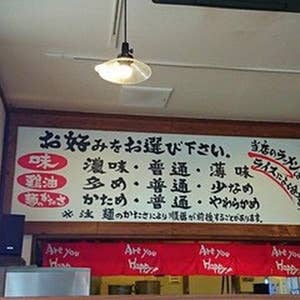 お好みをお選び下さい。
味 濃味・普通・薄味
鶏油 多め・普通・少なめ
麺かたさ かため・普通・やわらかめ
※注 麺のかたさにより順番が前後することがあります。
当店のラーメン
ライスに
Are you Happy!
Are you Happy!
Are you Happy!